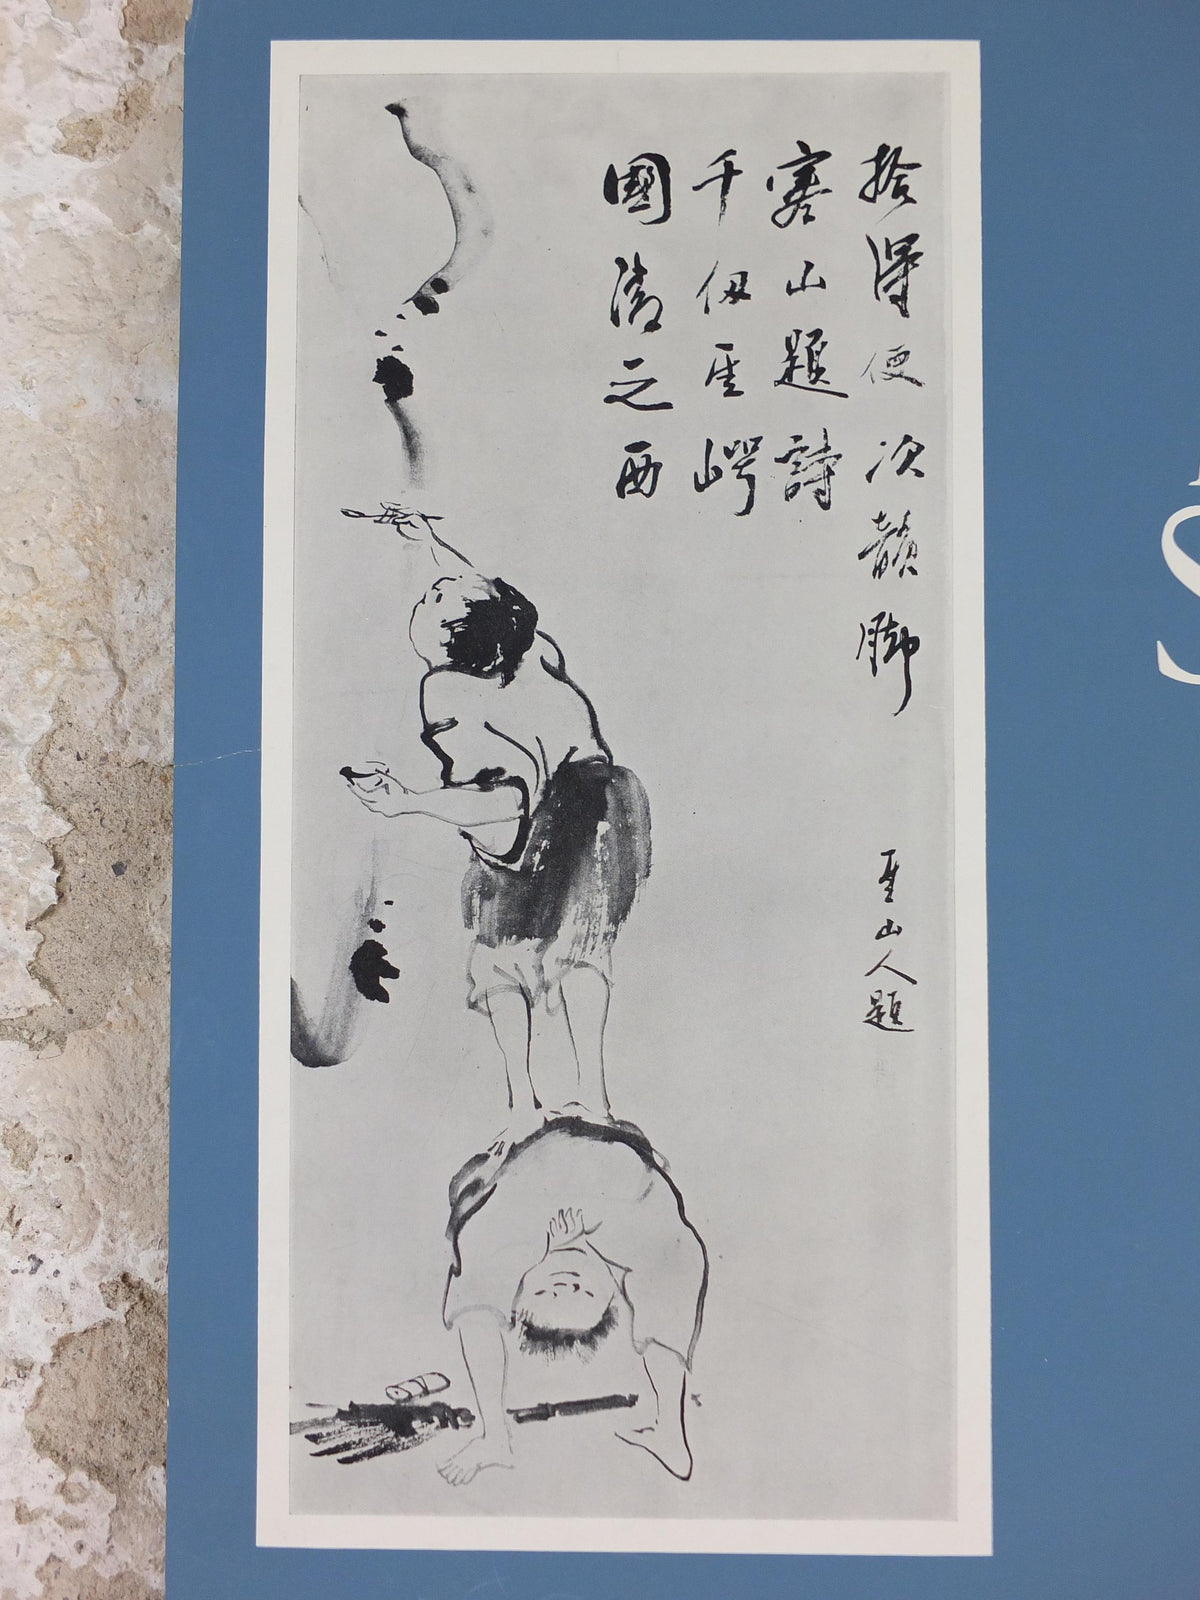 拾得便次韻脚
寒山題詩
千仞聖崿
國清之西
聖山人題
S